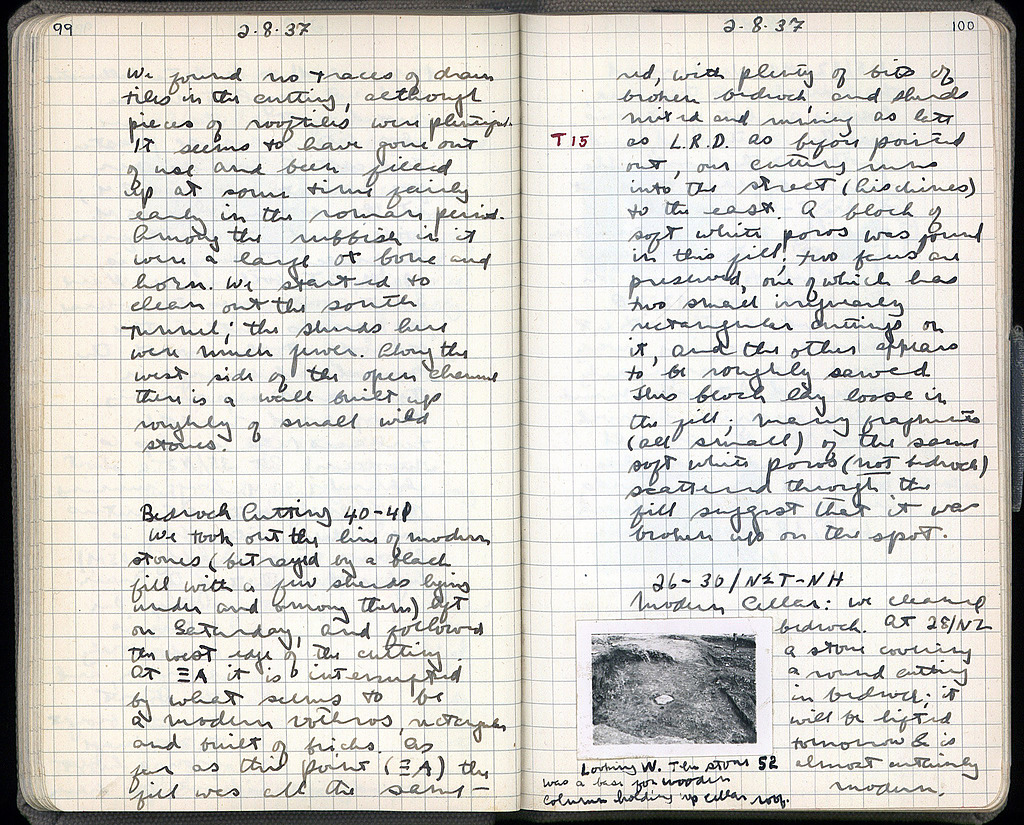 99
2·8·37
We found no traces of drain
tiles in the cutting, although
pieces of rooftiles were plentiful.
It seems to have gone out
of use and been filled
up at some time fairly
early in the roman period.
Among the rubbish in it
were a large ox bone and
horn. We started to
clean out the south
tunnel; the sherds here
were much fewer. Along the
west side of the open channel
there is a wall built up
roughly of small wild
stones.
Bedrock Cutting 40-48
We took out the line of modern
stones (betrayed by a black
fill with a few sherds lying
under and among them) left
on Saturday, and followed
the west edge of the cutting.
At ΞA it is interrupted
by what seems to be
a modern vothros, rectangular
and built of bricks. As
far as this point (ΞA) the
fill was all the same—
2·8·37
100
red, with plenty of bits of
broken bedrock, and sherds
mixed and running as late
T 15
as L.R.D. as before pointed
out, our cutting runs
into the street
to the east. A block of
soft white poros was found
in this fill; two faces are
preserved, one of which has
two small irregularly
rectangular cuttings on
it, and the other appears
to be roughly sawed.
This block lay loose in
the fill; many fragments
(all small) of the same
soft white poros (not bedrock)
scattered through the
fill suggest that it was
broken up on the spot.
26-30/NΣT-NH
Modern Cellar: we cleaned
bedrock. At 28/NZ
a stone covering
a round cutting
in bedrock; it
will be lifted
tomorrow & is
almost certainly
modern.
Looking W. The stone 52
was a base for wooden
column holding up cellar roof.